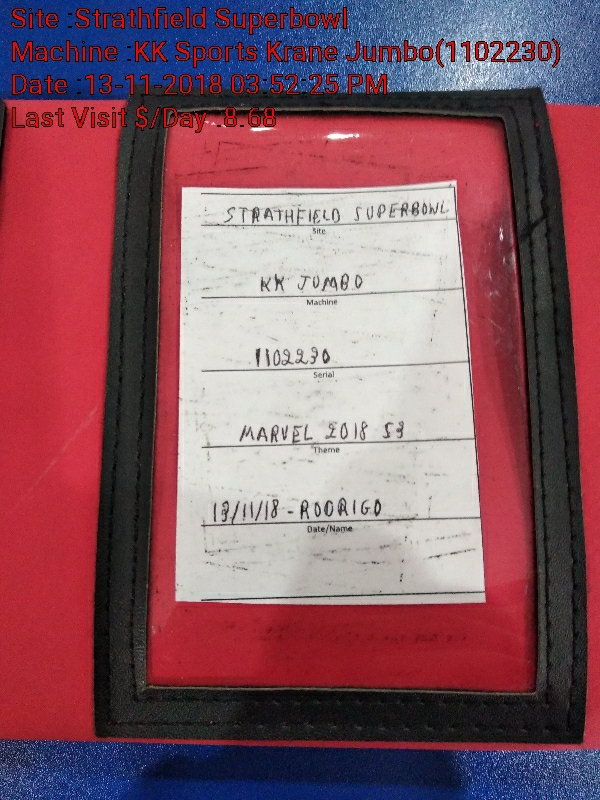 Site :Strathfield Superbowl
Machine :KK Sports Krane Jumbo(1102230)
Date :13-11-2018 03:52:25 PM
Last Visit $/Day :8.68
STRATHFIELD SUPERBOWL
Site
KK JUMBO
Machine
1102230
Serial
MARVEL 2018 S3
Theme
13/11/18 - RODRIGO
Date/Name